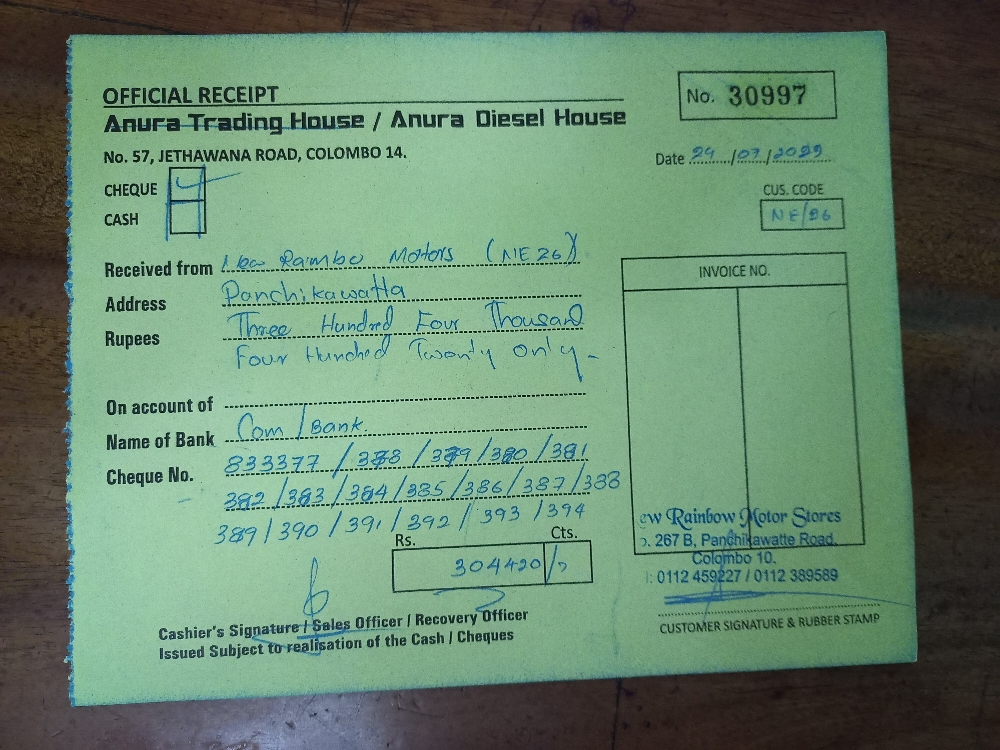 OFFICIAL RECEIPT
No. 30997
Anura Trading House / Anura Diesel House
No. 57, JETHAWANA ROAD, COLOMBO 14.
Date 24/07/2029
CHEQUE
CUS. CODE
CASH
NE/26
Received from New Raimbo Motors (NE 26)
INVOICE NO.
Address Panchikawatta
Rupees Three Hundred Four Thousand
Four Hundred Twenty only -
On account of
Name of Bank Com/Bank.
Cheque No. 833377 / 378 / 379 / 380 / 381
382 / 383 / 384 / 385 / 386 / 387 / 388
389 / 390 / 391 / 392 / 393 / 394
ew Rainbow Motor Stores
. 267 B, Panchikawatte Road,
Colombo 10.
: 0112 459227 / 0112 389589
Rs. Cts.
304420/
Cashier's Signature / Sales Officer / Recovery Officer
Issued Subject to realisation of the Cash / Cheques
CUSTOMER SIGNATURE & RUBBER STAMP